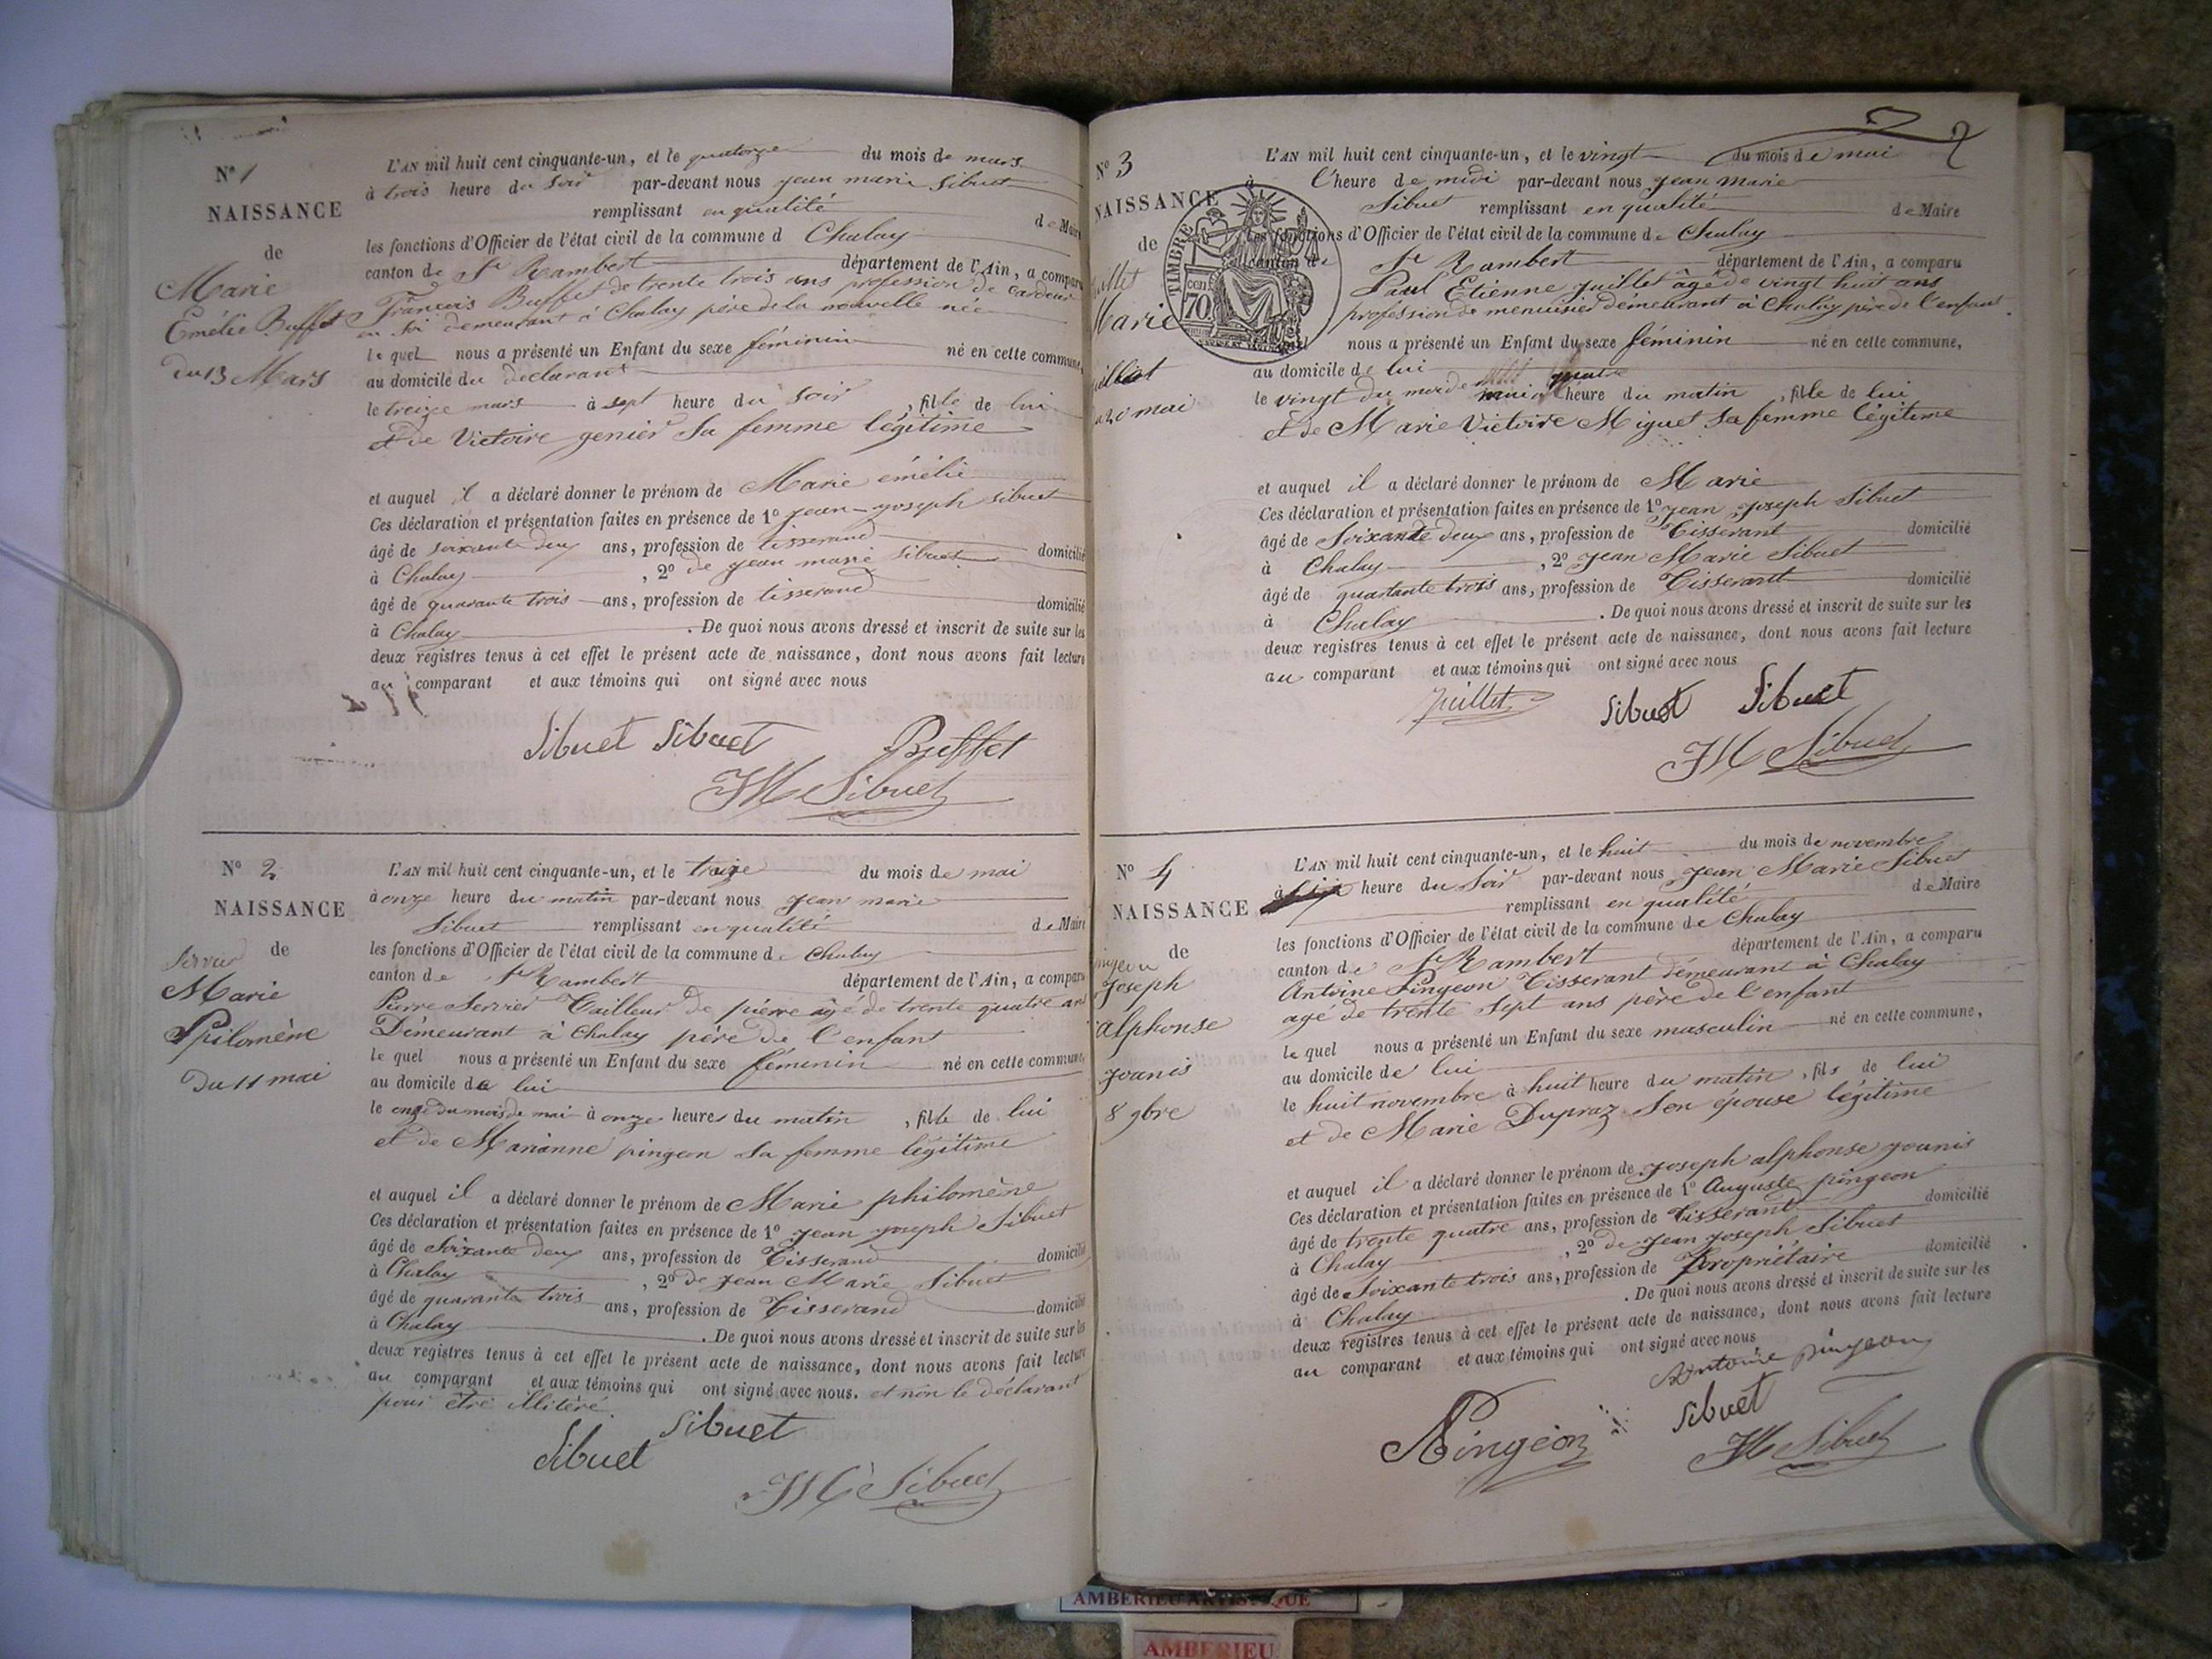 N° 1
NAISSANCE
de
Marie
Emélie Buffet
du 13 Mars
L'AN mil huit cent cinquante-un, et le quatorze du mois de mars
à trois heure du soir par-devant nous jean marie Sibuet
remplissant en qualité de Maire
les fonctions d'Officier de l'état civil de la commune d Chaley
canton de St Rambert département de l'Ain, a comparu
François Buffet de trente trois ans profession de cardeur
en soi demeurant à Chaley père de la nouvelle née
le quel nous a présenté un Enfant du sexe féminin né en cette commune,
au domicile du declarant
le treize mars à sept heure du soir, fille de lui
et de Victoire genier sa femme légitime
et auquel il a déclaré donner le prénom de Marie émélie
Ces déclaration et présentation faites en présence de 1° jean-joseph sibuet
âgé de soixante deux ans, profession de tisserand domicilié
à Chaley, 2° de jean marie sibuet
âgé de quarante trois ans, profession de tisserand domicilié
à Chaley. De quoi nous avons dressé et inscrit de suite sur les
deux registres tenus à cet effet le présent acte de naissance, dont nous avons fait lecture
au comparant et aux témoins qui ont signé avec nous
Sibuet Sibuet Buffet
JM Sibuet
N° 2
NAISSANCE
de
Servier
Marie
Philomène
Du 11 mai
L'AN mil huit cent cinquante-un, et le treize du mois de mai
à onze heure du matin par-devant nous jean marie
Sibuet remplissant en qualité de Maire
les fonctions d'Officier de l'état civil de la commune de Chaley
canton de St Rambert département de l'Ain, a comparu
Pierre Servier Tailleur de pierre agé de trente quatre ans
Démeurant à Chaley père de l'enfant
le quel nous a présenté un Enfant du sexe féminin né en cette commune,
au domicile de lui
le onze du mois de mai à onze heures du matin, fille de lui
et de Marianne pingeon sa femme légitime
et auquel il a déclaré donner le prénom de Marie philomène
Ces déclaration et présentation faites en présence de 1° jean joseph Sibuet
âgé de Soixante deux ans, profession de Tisserand domicilié
à Chaley, 2° de jean Marie Sibuet
âgé de quarante trois ans, profession de Tisserand domicilié
à Chaley. De quoi nous avons dressé et inscrit de suite sur les
deux registres tenus à cet effet le présent acte de naissance, dont nous avons fait lecture
au comparant et aux témoins qui ont signé avec nous. et non le déclarant
pour être illitéré
Sibuet
Sibuet
JM Sibuet
N° 3
NAISSANCE
de
Marie
20 mai
TIMBRE
70
L'AN mil huit cent cinquante-un, et le vingt du mois de mai
à l'heure de midi par-devant nous jean marie
Sibuet remplissant en qualité de Maire
les fonctions d'Officier de l'état civil de la commune de Chaley
canton de St Rambert département de l'Ain, a comparu
Paul Etienne juillet âgé de vingt huit ans
profession de menuisier démeurant à Chaley père de l'enfant.
nous a présenté un Enfant du sexe féminin né en cette commune,
au domicile de lui
le vingt du mois de mai à quatre heure du matin, fille de lui
et de Marie Victoire Miguet sa femme légitime
et auquel il a déclaré donner le prénom de Marie
Ces déclaration et présentation faites en présence de 1° jean joseph Sibuet
âgé de Soixante deux ans, profession de Tisserant domicilié
à Chaley, 2° jean Marie Sibuet
âgé de quartante trois ans, profession de Tisserant domicilié
à Chaley. De quoi nous avons dressé et inscrit de suite sur les
deux registres tenus à cet effet le présent acte de naissance, dont nous avons fait lecture
au comparant et aux témoins qui ont signé avec nous
juillet Sibuet Sibuet
JM Sibuet
N° 4
NAISSANCE
de
Joseph
alphonse
joanis
8 9bre
L'AN mil huit cent cinquante-un, et le huit du mois de novembre
à heure du soir par-devant nous Jean Marie Sibuet
remplissant en qualité de Maire
les fonctions d'Officier de l'état civil de la commune de Chaley
canton de St Rambert département de l'Ain, a comparu
Antoine Pingeon Tisserant démeurant à Chaley
agé de trente sept ans père de l'enfant
le quel nous a présenté un Enfant du sexe masculin né en cette commune,
au domicile de lui
le huit novembre à huit heure du matin, fils de lui
et de Marie Dupraz son épouse légitime
et auquel il a déclaré donner le prénom de joseph alphonse joanis
Ces déclaration et présentation faites en présence de 1° Auguste pingeon
âgé de trente quatre ans, profession de Tisserant domicilié
à Chaley, 2° de jean joseph Sibuet
âgé de Soixante trois ans, profession de Propriétaire domicilié
à Chaley. De quoi nous avons dressé et inscrit de suite sur les
deux registres tenus à cet effet le présent acte de naissance, dont nous avons fait lecture
au comparant et aux témoins qui ont signé avec nous
Antoine pingeon
Pingeon Sibuet
JM Sibuet
AMBERIEU ARTISTIQUE
AMBERIEU